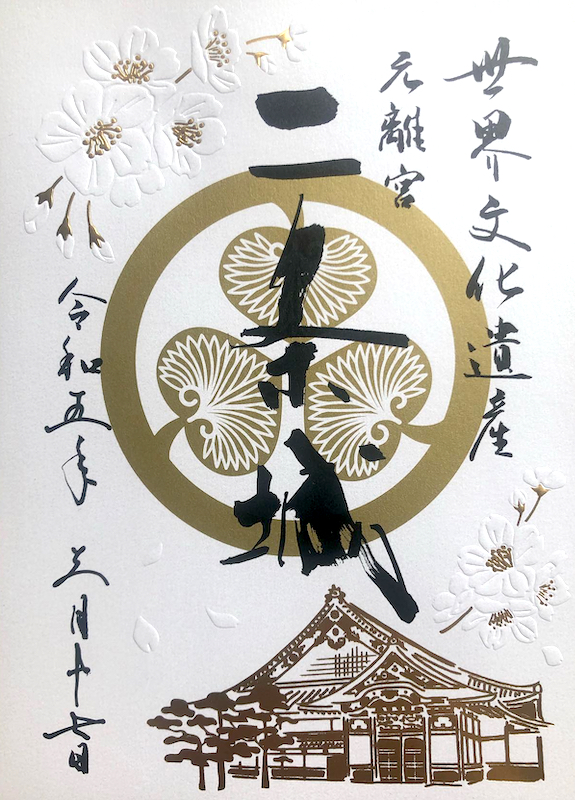 世界文化遺産
元離宮
二条城
令和五年 三月十七日